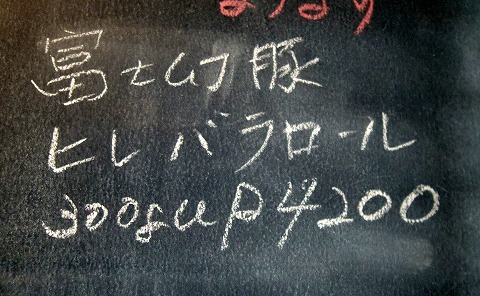 富士幻豚
ヒレバラロール
300gup 4200